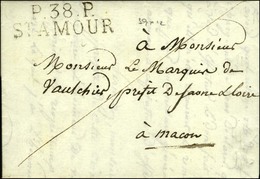 P. 38. P.
ST AMOUR
à Monsieur
Monsieur Le Marquis de
Vaulchier, préfet De Saone & Loire
à macon